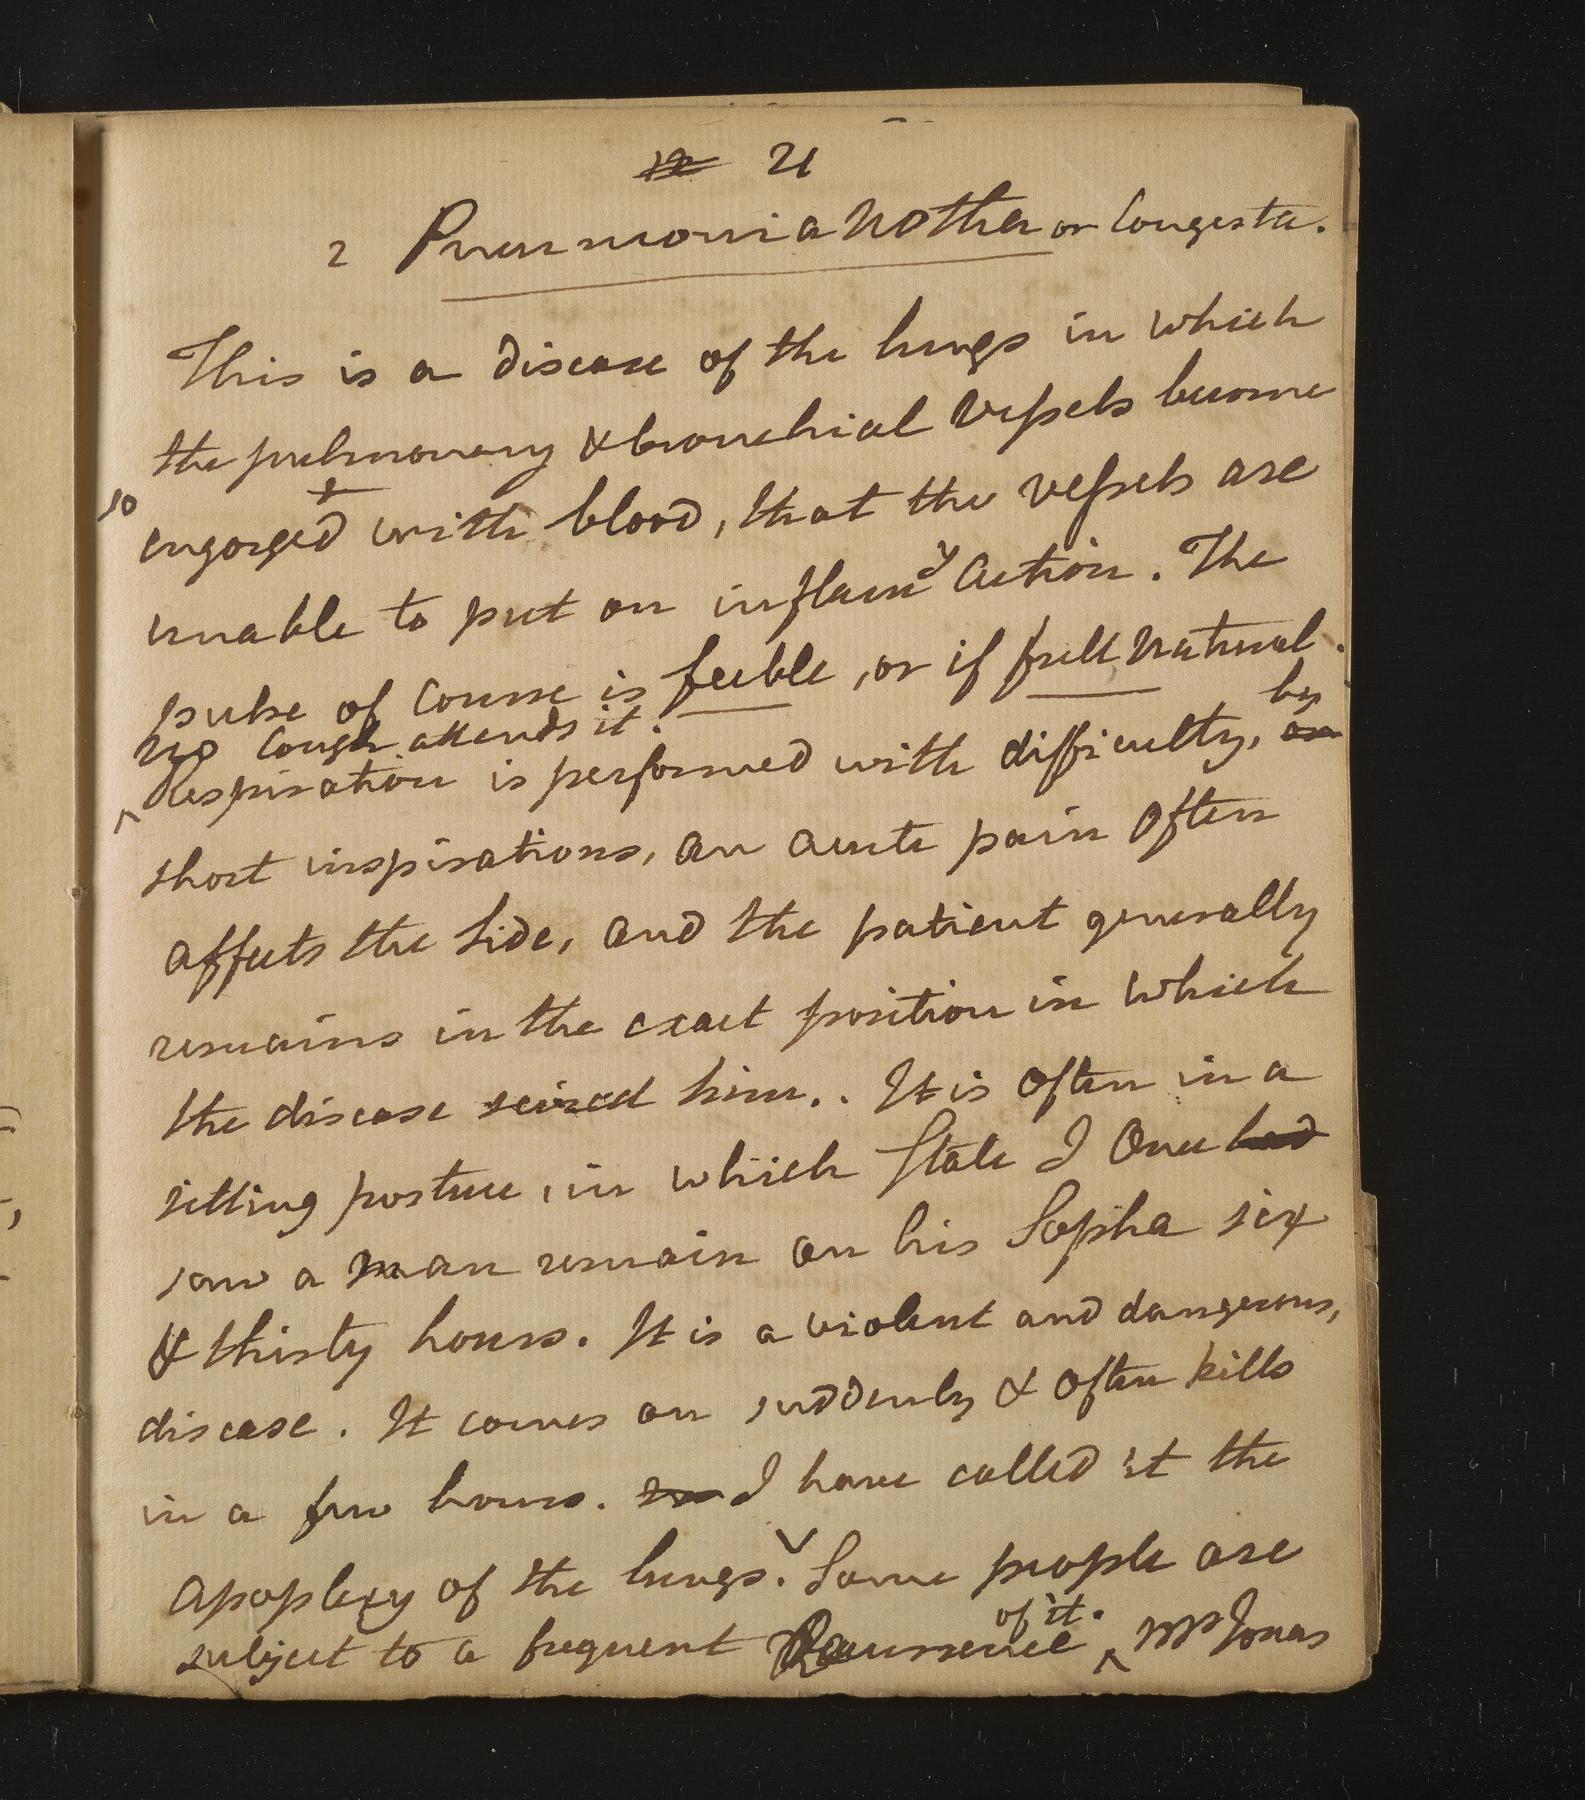 21
2 Pneumonia Notha or Congesta.
This is a disease of the lungs in which
the pulmonary & bronchial vessels become
so engorged with blood, that the vessels are
unable to put on inflamy action. The
pulse of course is feeble, or if full natural.
No cough attends it.
Respiration is performed with difficulty, by
short inspirations, an acute pain often
affects the side, and the patient generally
remains in the exact position in which
the disease seized him.. It is often in a
sitting posture, in which state I once had
saw a man remain on his Sopha six
& thirty hours. It is a violent and dangerous,
disease. It comes on suddenly & often kills
in a few hours. I have called it the
apoplexy of the lungs. Some people are
subject to a frequent Recurrence of it. Mr Jonas